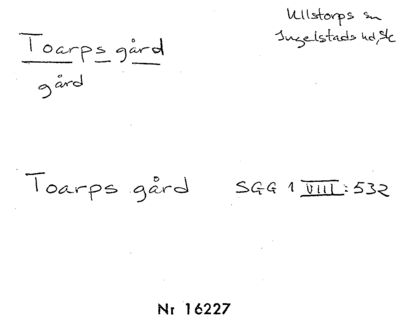 Ullstorps sn
Ingelstads hd, Sk
Toarps gård
gård
Toarps gård SGG 1 VIII: 532
Nr 16227